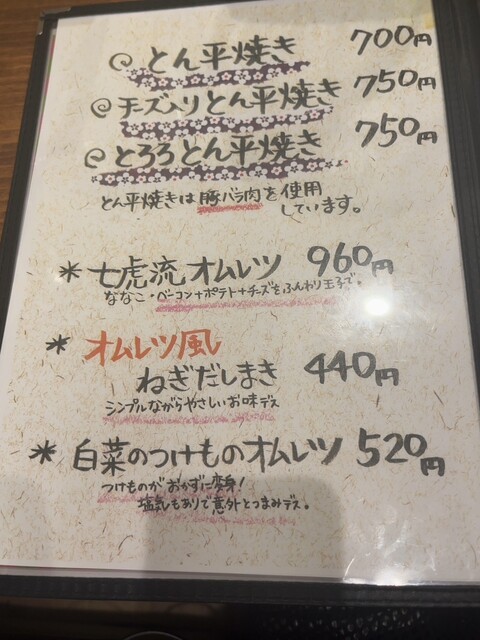 とん平焼き 700円
チーズ入りとん平焼き 750円
とろろとん平焼き 750円
とん平焼きは豚バラ肉を使用
しています。
* 七虎流オムレツ 960円
ななこ・ベーコン+ポテト+チーズをふんわり玉子で。
* オムレツ風
ねぎだしまき 440円
シンプルながらやさしいお味デス
* 白菜のつけものオムレツ 520円
つけものがおかずに変身!
塩気もありで意外とつまみデス。